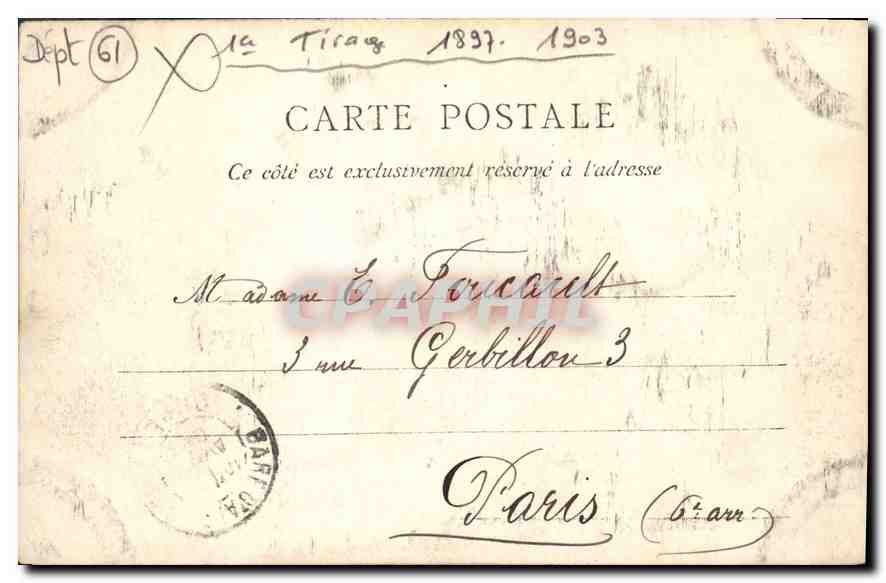 Dépt 61 1a Tirage 1897. 1903
CARTE POSTALE
Ce côté est exclusivement réservé à l'adresse
Madame E. Foucault
CPAPHIL
3 rue Gerbillon 3
Paris (6e arr)